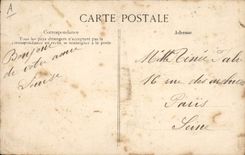 A
CARTE POSTALE
Correspondance
Tous les pays étrangers n'acceptent pas la
correspondance au recto, se renseigner à la poste
Adresse
Bonjour
de votre amie
Louise
Mlle Renée
16 rue des
Paris
Seine